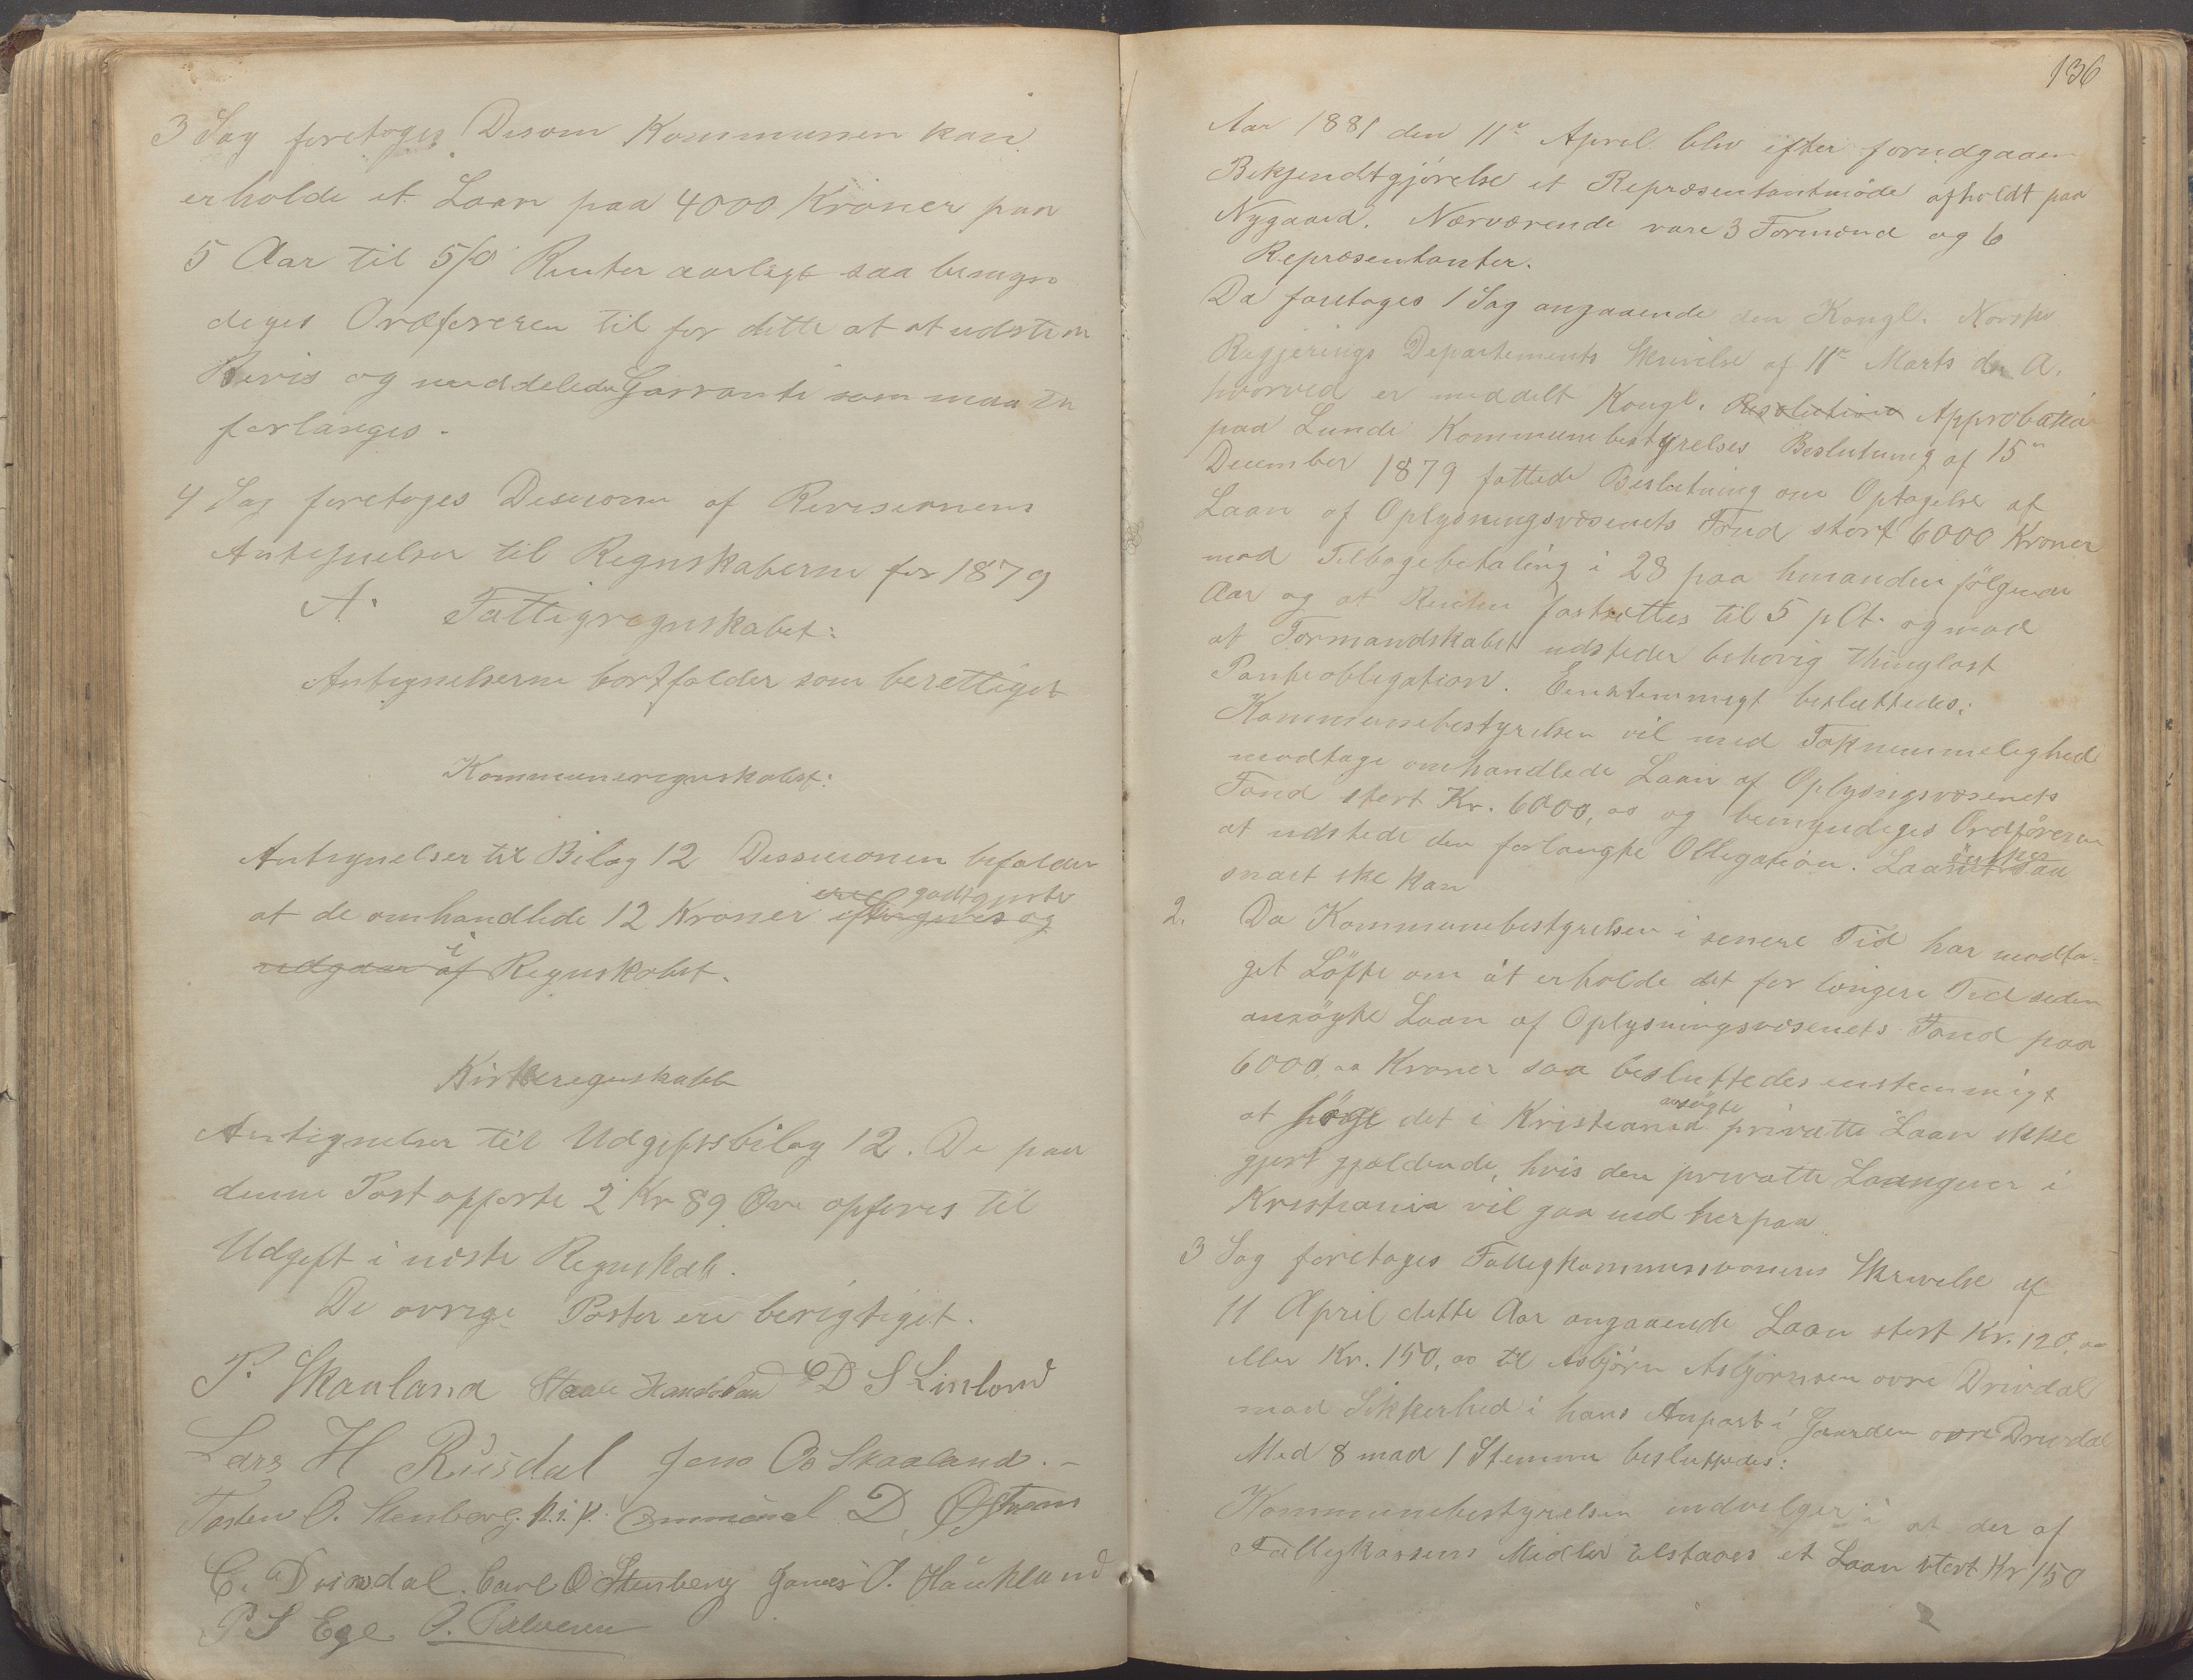 3 Sag foretoges Desom Kommunen kan
erholde et Laan paa 4000 Kroner paa
5 Aar til 5/0 Renter aarligt saa bemyn
diges Ordføreren til for dette at at udstæn
Bevis og meddelede Garranti som maatte
forlanges.
4 Sag foretoges Desision af Revisernens
Antegnelser til Regnskaberne for 1879
A. Fattigregnskabet:
Antegnelserne bortfalder som berettiget
Kommuneregnskabet:
Antegnelser til Bilag 12 Dessisionen befalder
ere godtgjorte
at de omhandlede 12 Kroner eftergives og
i
udgaar af Regnskabet.
Kirkeregnskabet
Antegnelser til Udgiftsbilag 12. De paa
denne Post opførte 2 Kr 89 Øre opføres til
Udgift i næste Regnskab.
De øvrige Poster ere berigtiget.
P. Skauland Staale Haukeland D S Linland
Lars H Rusdal Jens O Skaaland.
Tosten O. Stenberg. p.i.p. Emmanuel D. Østrem
C. Drivdal. Carl O Stenberg Jonas O. Haukland
P S Ege. O. Salvesen
136
Aar 1881 den 11te April blev efter forudgaaen
Bekjendtgjörelse et Repræsentantmöde afholdt paa
Nygaard. Nærværende vare 3 Formænd og 6
Repræsentanter.
Da foretoges 1 Sag angaaende den Kongl. Norske
Regjerings Departements Skrivelse af 11te Marts d. A.
hvorved er meddelt Kongl. Resolution Approbation
paa Lunde Kommunebestyrelses Beslutning af 15de
December 1879 fattede Beslutning om Optagelse af
Laan af Oplysningsvæsenets Fond stort 6000 Kroner
mod Tilbagebetaling i 28 paa hinanden følgende
Aar og at Renten fastsættes til 5 pCt. og mod
at Formandskabet udsteder behørig thinglæst
Panteobligation. Eenstemmigt besluttedes:
Kommunebestyrelsen vil med Taknemmelighed
modtage omhandlede Laan af Oplysningsvæsenets
Fond stort Kr. 6000,00 og bemyndiges Ordføreren
at udstede den forlangte Obligation. Laanet
önskes
saa
snart ske kan
2. Da Kommunebestyrelsen i senere Tid har modta-
get Löfte om at erholde det for længere Tid siden
ansögte Laan af Oplysningsvæsenets Fond paa
6000,00 Kroner saa besluttedes enstemmigt
ansögte
at söge det i Kristiania privatte Laan ikke
gjort gjældende, hvis den privatte Laangiver i
Kristiania vil gaa ind herpaa
3 Sag foretoges Fattigkommissionens Skrivelse af
11 April dette Aar angaaende Laan stort Kr. 120,00
eller Kr. 150,00 til Asbjörn Asbjörnsen øvre Drivdal
mod Sikkerhed i hans Anpart i Gaarden øvre Drivdal
Med 8 mod 1 Stemme besluttedes:
Kommunebestyrelsen indvilger i at der af
Fattigkassens Midler tilstaaes et Laan stort Kr 150